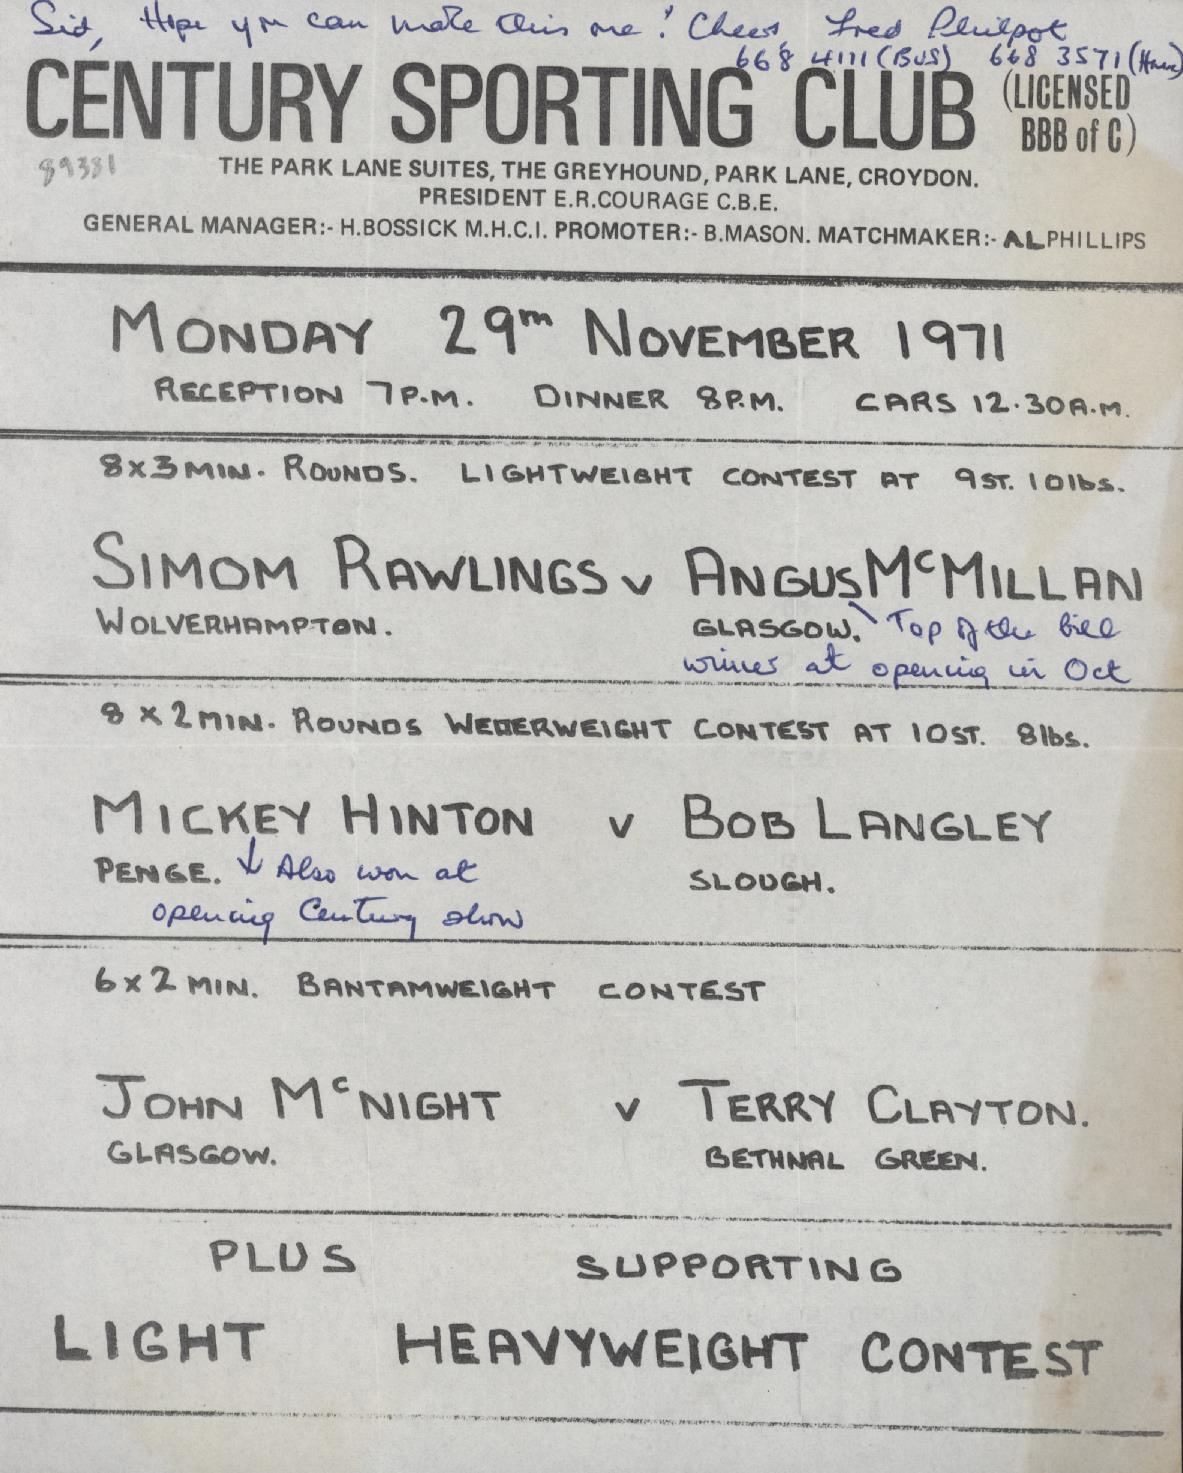 Sid, Hope you can make this one! Cheers, Fred Philpot
668 4111 (BUS) 668 3571 (Home)
CENTURY SPORTING CLUB (LICENSED BBB of C)
89381
THE PARK LANE SUITES, THE GREYHOUND, PARK LANE, CROYDON.
PRESIDENT E.R.COURAGE C.B.E.
GENERAL MANAGER:- H.BOSSICK M.H.C.I. PROMOTER:- B.MASON. MATCHMAKER:- AL PHILLIPS
MONDAY 29TH NOVEMBER 1971
RECEPTION 7P.M. DINNER 8P.M. CARS 12.30A.M.
8X3MIN. ROUNDS. LIGHTWEIGHT CONTEST AT 9ST. 10lbs.
SIMOM RAWLINGS v ANGUS McMILLAN
WOLVERHAMPTON. GLASGOW. Top of the bill
winner at opening in Oct
8 X 2MIN. ROUNDS WELTERWEIGHT CONTEST AT 10ST. 8lbs.
MICKEY HINTON v BOB LANGLEY
PENGE. ↓ Also won at SLOUGH.
opening Century show
6x2 MIN. BANTAMWEIGHT CONTEST
JOHN McNIGHT v TERRY CLAYTON.
GLASGOW. BETHNAL GREEN.
PLUS SUPPORTING
LIGHT HEAVYWEIGHT CONTEST